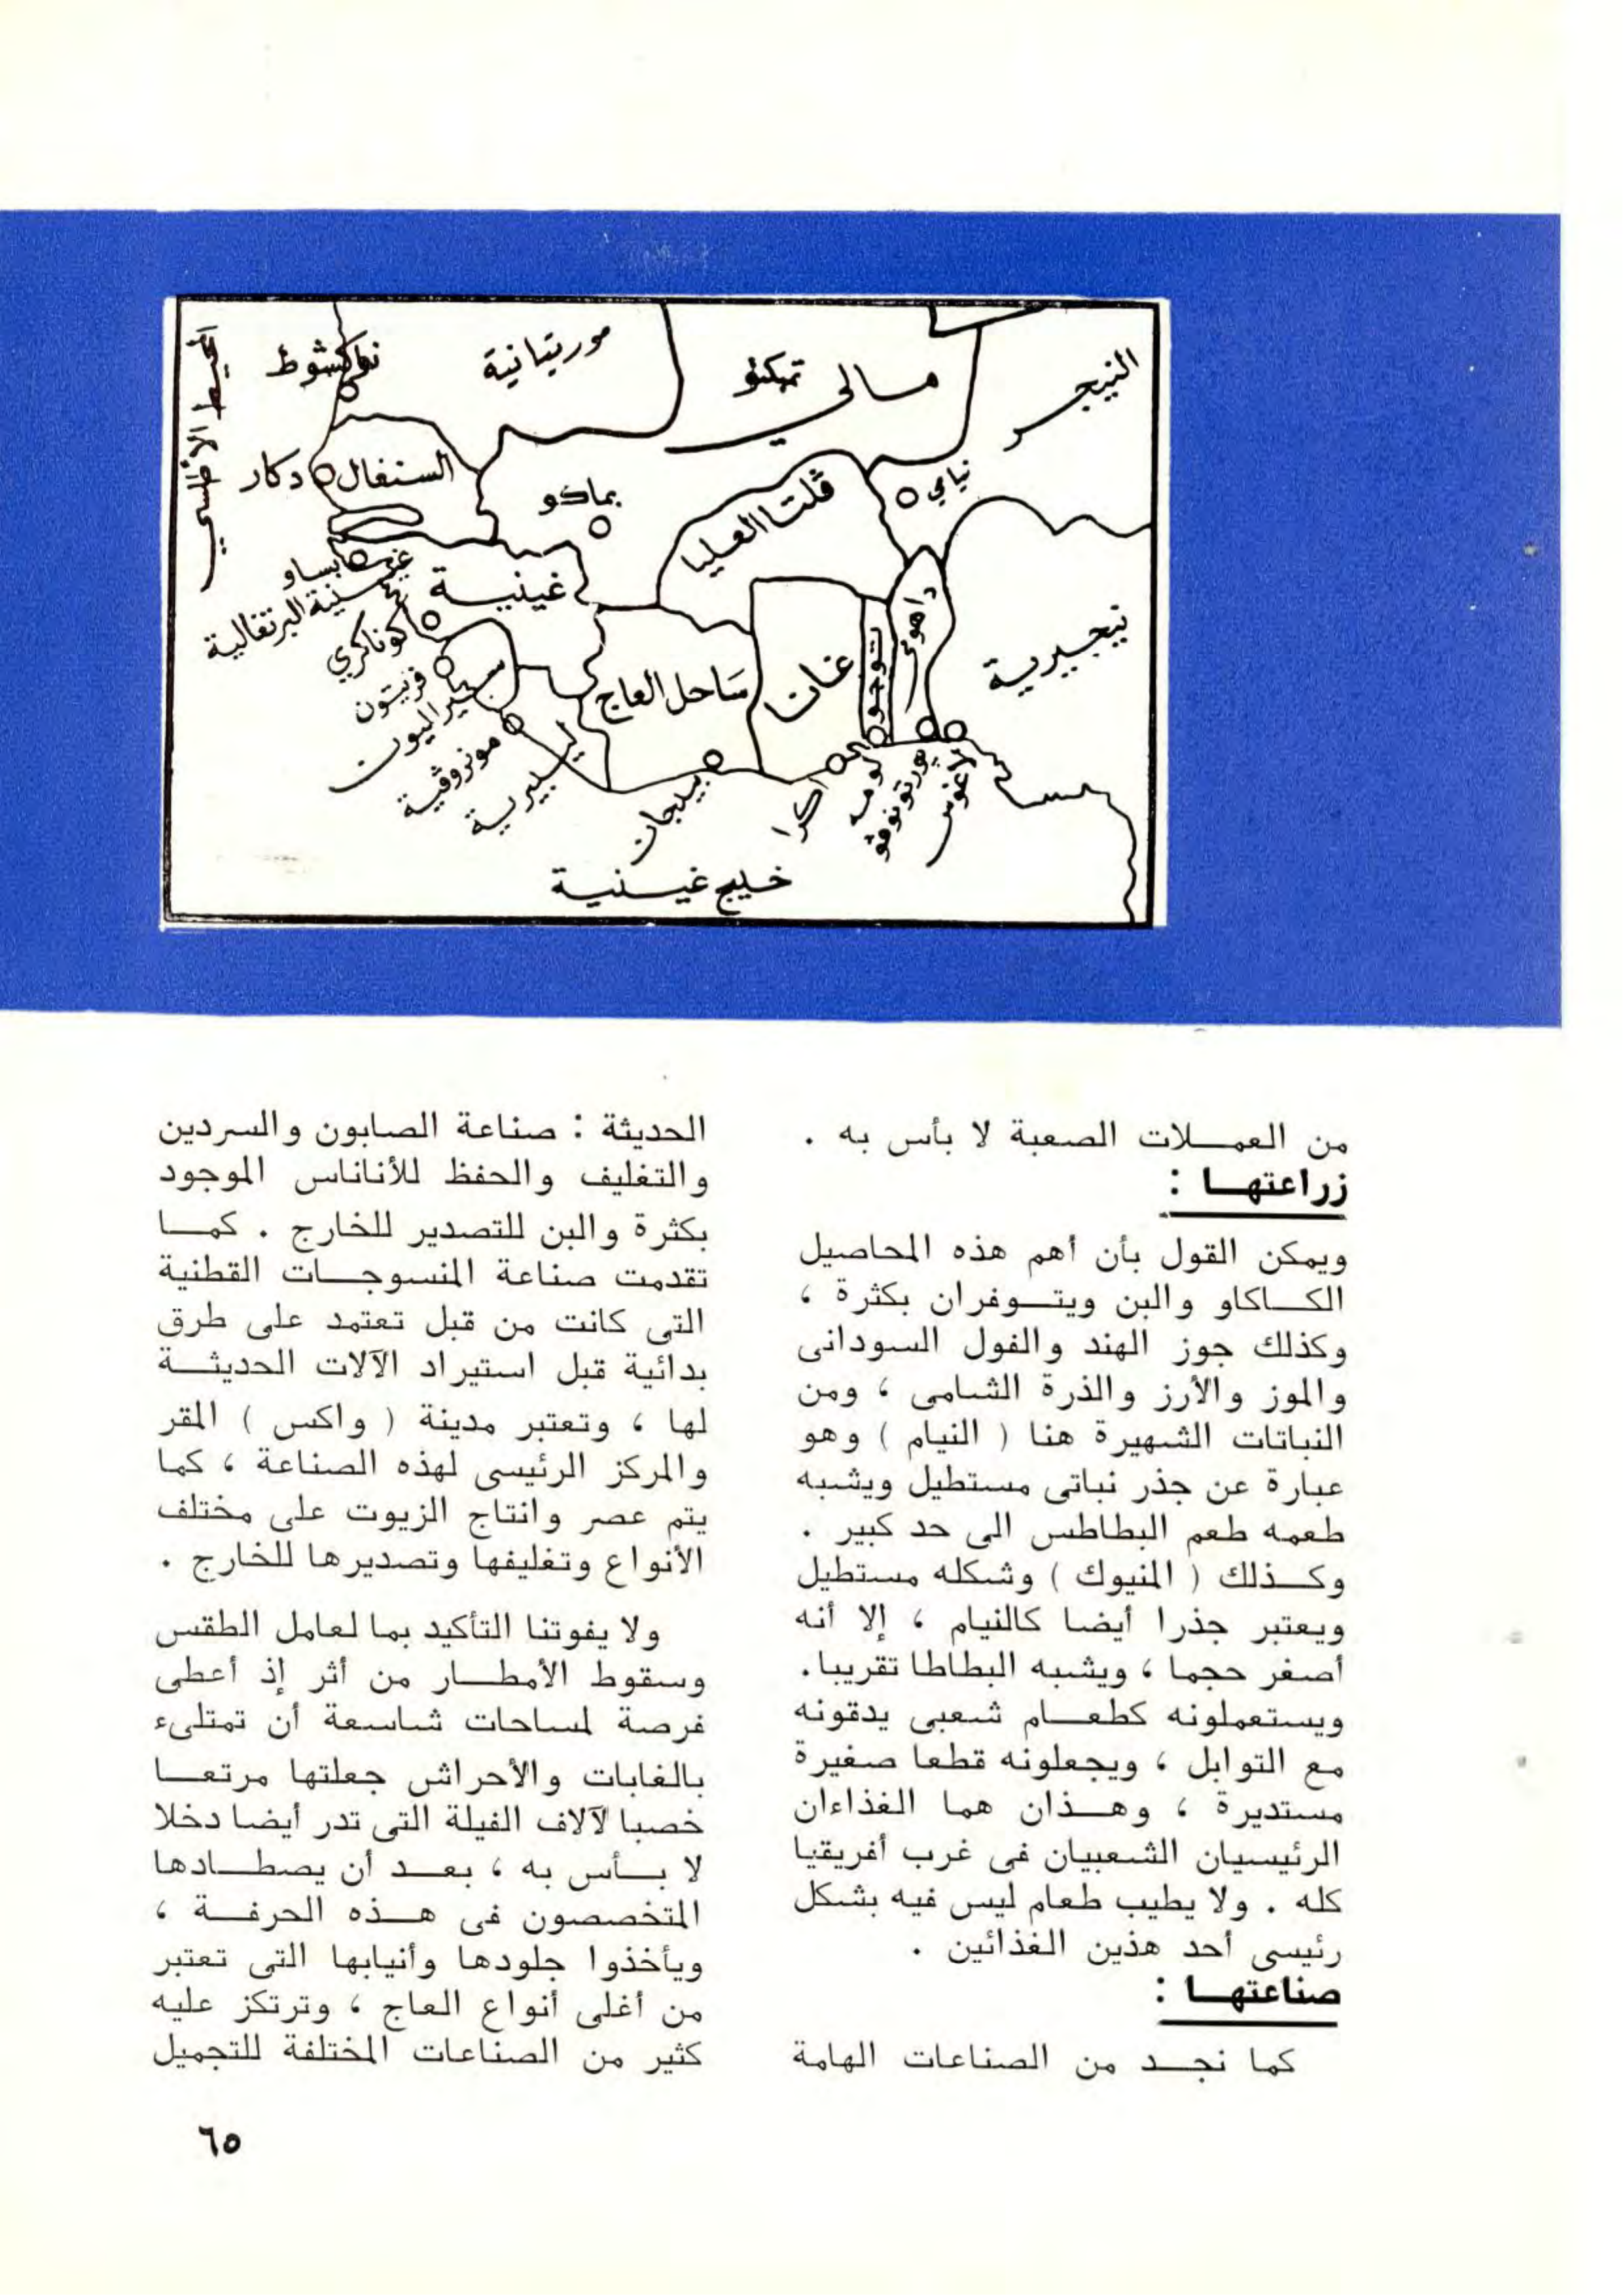 المحيط الأطلسي
نواكشوط
موريتانية
تمبكتو
مالي
النيجر
السنغال
دكار
بماكو
ڤلتا العليا
نيامي
بيساو
غينية البرتغالية
غينية
كوناكري
فريتون
سيراليون
مونروڤية
ليبيرية
ساحل العاج
غانا
توجو
داهومي
نيجيرية
بيدجان
اكرا
لومه
پورتونوڤو
لاغوس
خليج غينية
من العمـلات الصعبة لا بأس به .
زراعتهـا :
ويمكن القول بأن أهم هذه المحاصيل
الكـاكاو والبن ويتـوفران بكثرة ،
وكذلك جوز الهند والفول السودانى
والموز والأرز والذرة الشامى ، ومن
النباتات الشهيرة هنا ( النيام ) وهو
عبارة عن جذر نباتى مستطيل ويشبه
طعمه طعم البطاطس الى حد كبير .
وكـذلك ( المنيوك ) وشكله مستطيل
ويعتبر جذرا أيضا كالنيام ، إلا أنه
أصغر حجما ، ويشبه البطاطا تقريبا .
ويستعملونه كطعـام شعبى يدقونه
مع التوابل ، ويجعلونه قطعا صغيرة
مستديرة ، وهـذان هما الغذاءان
الرئيسيان الشعبيان فى غرب أفريقيا
كله . ولا يطيب طعام ليس فيه بشكل
رئيسى أحد هذين الغذائين .
صناعتهـا :
كما نجـد من الصناعات الهامة
الحديثة : صناعة الصابون والسردين
والتغليف والحفظ للأناناس الموجود
بكثرة والبن للتصدير للخارج . كمـا
تقدمت صناعة المنسوجـات القطنية
التى كانت من قبل تعتمد على طرق
بدائية قبل استيراد الآلات الحديثـة
لها ، وتعتبر مدينة ( واكس ) المقر
والمركز الرئيسى لهذه الصناعة ، كما
يتم عصر وانتاج الزيوت على مختلف
الأنواع وتغليفها وتصديرها للخارج .
ولا يفوتنا التأكيد بما لعامل الطقس
وسقوط الأمطـار من أثر إذ أعطى
فرصة لمساحات شاسعة أن تمتلىء
بالغابات والأحراش جعلتها مرتعـا
خصبا لآلاف الفيلة التى تدر أيضا دخلا
لا بـأس به ، بعـد أن يصطـادها
المتخصصون فى هـذه الحرفـة ،
ويأخذوا جلودها وأنيابها التى تعتبر
من أغلى أنواع العاج ، وترتكز عليه
كثير من الصناعات المختلفة للتجميل
٦٥